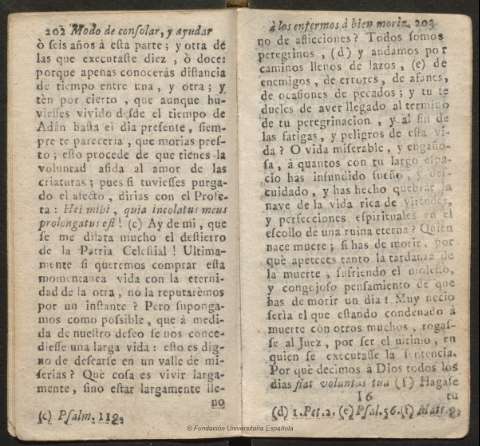 202 Modo de consolar, y ayudar
ò seis años à esta parte; y otra de
las que executaste diez, ò doce;
porque apenas conocerás distancia
de tiempo entre una, y otra; y
tèn por cierto, que aunque hu-
viesses vivido desde el tiempo de
Adán hasta el dia presente, siem-
pre te pareceria, que morias pres-
to; esto procede de que tienes la
voluntad asida al amor de las
criaturas; pues si tuviesses purga-
do el afecto, dirias con el Profe-
ta: Hei mihi, quia incolatus meus
prolongatus est! (c) Ay de mi, que
se me dilata mucho el destierro
de la Patria Celestial! Ultima-
mente si queremos comprar esta
momentanea vida con la eterni-
dad de la otra, no la reputarèmos
por un instante? Pero suponga-
mos como possible, que à medi-
da de nuestro deseo se nos conce-
diesse una larga vida: esto es dig-
no de desearse en un valle de mi-
serias? Què cosa es vivir larga-
mente, sino estar largamente lle-
no
(c) Psalm. 119.
à los enfermos à bien morir. 203
no de aflicciones? Todos somos
peregrinos, (d) y andamos por
caminos llenos de lazos, (e) de
enemigos, de errores, de afanes,
de ocasiones de pecados; y tu te
dueles de aver llegado al termino
de tu peregrinacion, y al fin de
las fatigas, y peligros de esta vi-
da? O vida miserable, y engaño-
sa, à quantos con tu largo espa-
cio has infundido sueño, y des-
cuidado, y has hecho quebrar la
nave de la vida rica de virtudes,
y perfecciones espirituales en el
escollo de una ruina eterna? Quien
nace muere; si has de morir, por
què apeteces tanto la tardanza de
la muerte, sufriendo el molesto,
y congojoso pensamiento de que
has de morir un dia? Muy necio
seria el que estando condenado à
muerte con otros muchos, rogas-
se al Juez, por ser el ultimo, en
quien se executasse la sentencia.
Por què decimos à Dios todos los
dias fiat voluntas tua (f) Hagase
16 tu
(d) 1. Pet. 2. (e) Psal. 56. (f) Matt. 6.
© Fundación Universitaria Española